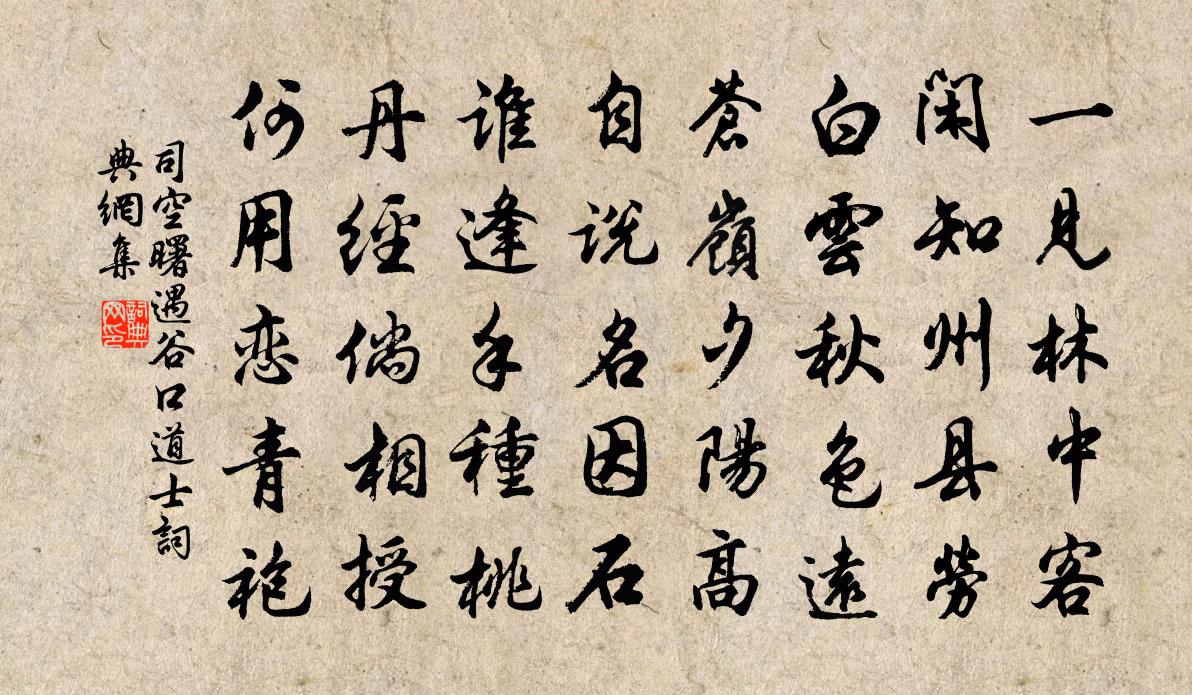 一見林中客
閑知州县勞
白雲秋色遠
蒼嶺夕陽高
自説名因石
誰逢手種桃
丹經倘相授
何用恋青袍
司空曙遇谷口道士詞
典網集
詞典网印